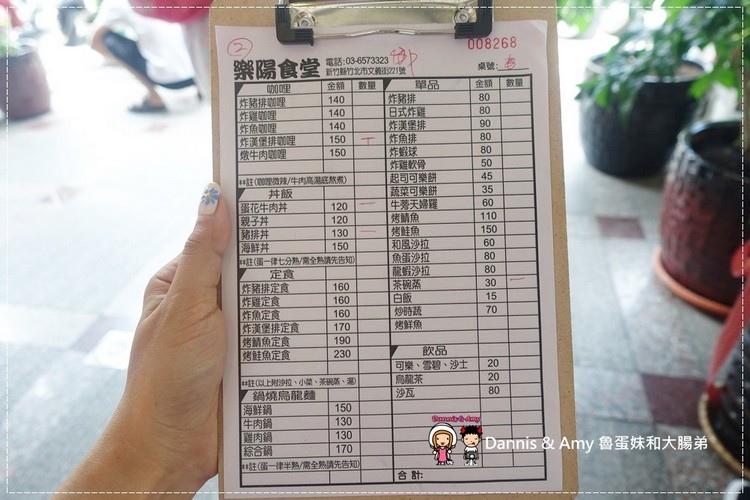 ② 008268
樂陽食堂 電話:03-6573323
新竹縣竹北市文義街221號 桌號:
咖哩 金額 數量
炸豬排咖哩 140
炸雞咖哩 140
炸魚咖哩 140
炸漢堡排咖哩 150 丅
燉牛肉咖哩 150
**註(咖哩微辣/牛肉高湯底熬煮)
丼飯
蛋花牛肉丼 120 一
親子丼 120
豬排丼 130 一
海鮮丼 150
**註(蛋一律七分熟/需全熟請先告知)
定食
炸豬排定食 160
炸雞定食 160
炸魚定食 160
炸漢堡排定食 170
烤鯖魚定食 190
烤鮭魚定食 230
**註(以上附沙拉、小菜、茶碗蒸、湯)
鍋燒烏龍麵
海鮮鍋 150
牛肉鍋 130
雞肉鍋 130
綜合鍋 170
**註(蛋一律半熟/需全熟請先告知)
單品 金額 數量
炸豬排 80
日式炸雞 80
炸漢堡排 90
炸魚排 80
炸蝦球 80
炸雞軟骨 50
起司可樂餅 45
蔬菜可樂餅 35
牛蒡天婦羅 60
烤鯖魚 110
烤鮭魚 150
和風沙拉 60
魚蛋沙拉 80
龍蝦沙拉 80
茶碗蒸 30 一
白飯 15
炒時蔬 70
烤鮮魚
飲品
可樂、雪碧、沙士 20
烏龍茶 20
沙瓦 80
合計:
Dannis & Amy
Dannis & Amy 魯蛋妹和大腸弟